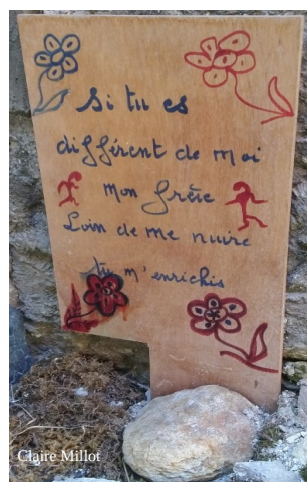 Si tu es
différent de moi
mon frère
Loin de me nuire
tu m'enrichis
Claire Millot